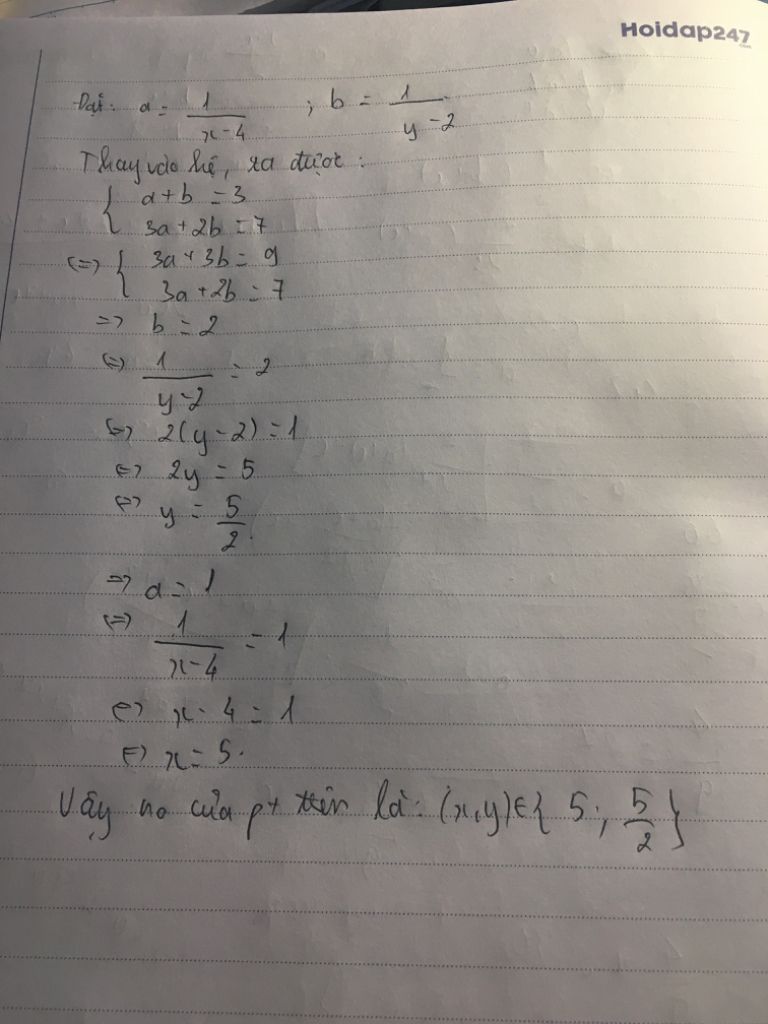 Hoidap247
.com
Đặt: a = 1/(x-4) ; b = 1/(y-2)
Thay vào hệ, ta được:
{ a + b = 3
3a + 2b = 7
(=) { 3a + 3b = 9
3a + 2b = 7
=> b = 2
(=) 1/(y-2) = 2
(=) 2(y-2) = 1
(=) 2y = 5
(=) y = 5/2.
=> a = 1
(=) 1/(x-4) = 1
(=) x - 4 = 1
(=) x = 5.
Vậy no của pt trên là: (x,y)∈{ 5 ; 5/2 }